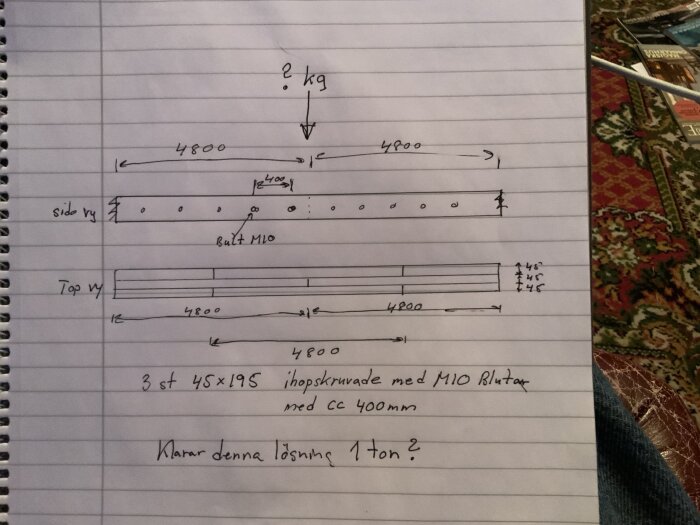 ? kg
4800 4800
400
sido vy
Bult M10
Top vy
45
45
45
4800 4800
4800
3 st 45x195 ihopskruvade med M10 Blutar
med cc 400mm
Klarar denna lösning 1 ton?